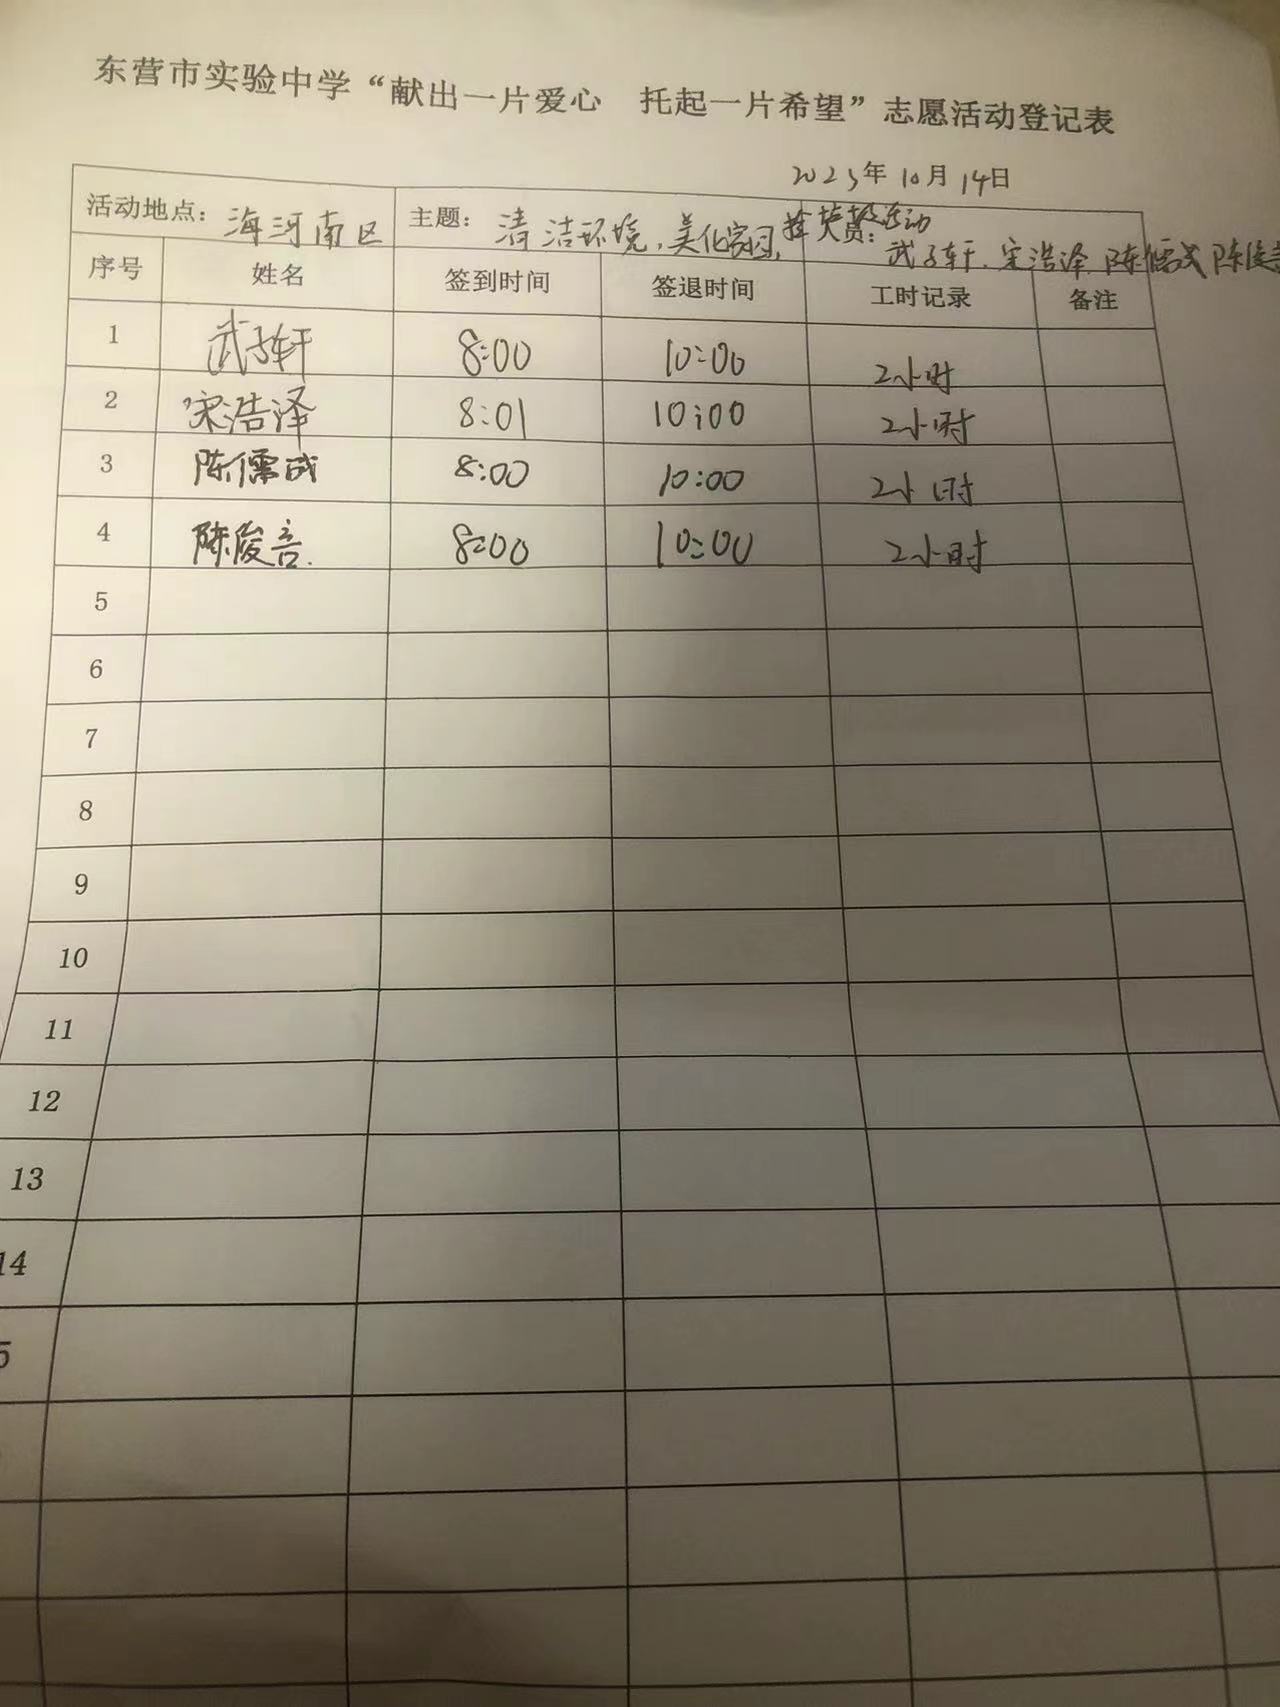 东营市实验中学“献出一片爱心 托起一片希望”志愿活动登记表
2023年10月14日
活动地点：海河南区 主题：清洁环境，美化家园， 活动 员：武子轩、宋浩泽 陈儒成 陈俊
序号 姓名 签到时间 签退时间 工时记录 备注
1 武子轩 8:00 10:00 2小时
2 宋浩泽 8:01 10:00 2小时
3 陈儒成 8:00 10:00 2小时
4 陈俊言 8:00 10:00 2小时
5
6
7
8
9
10
11
12
13
14
5